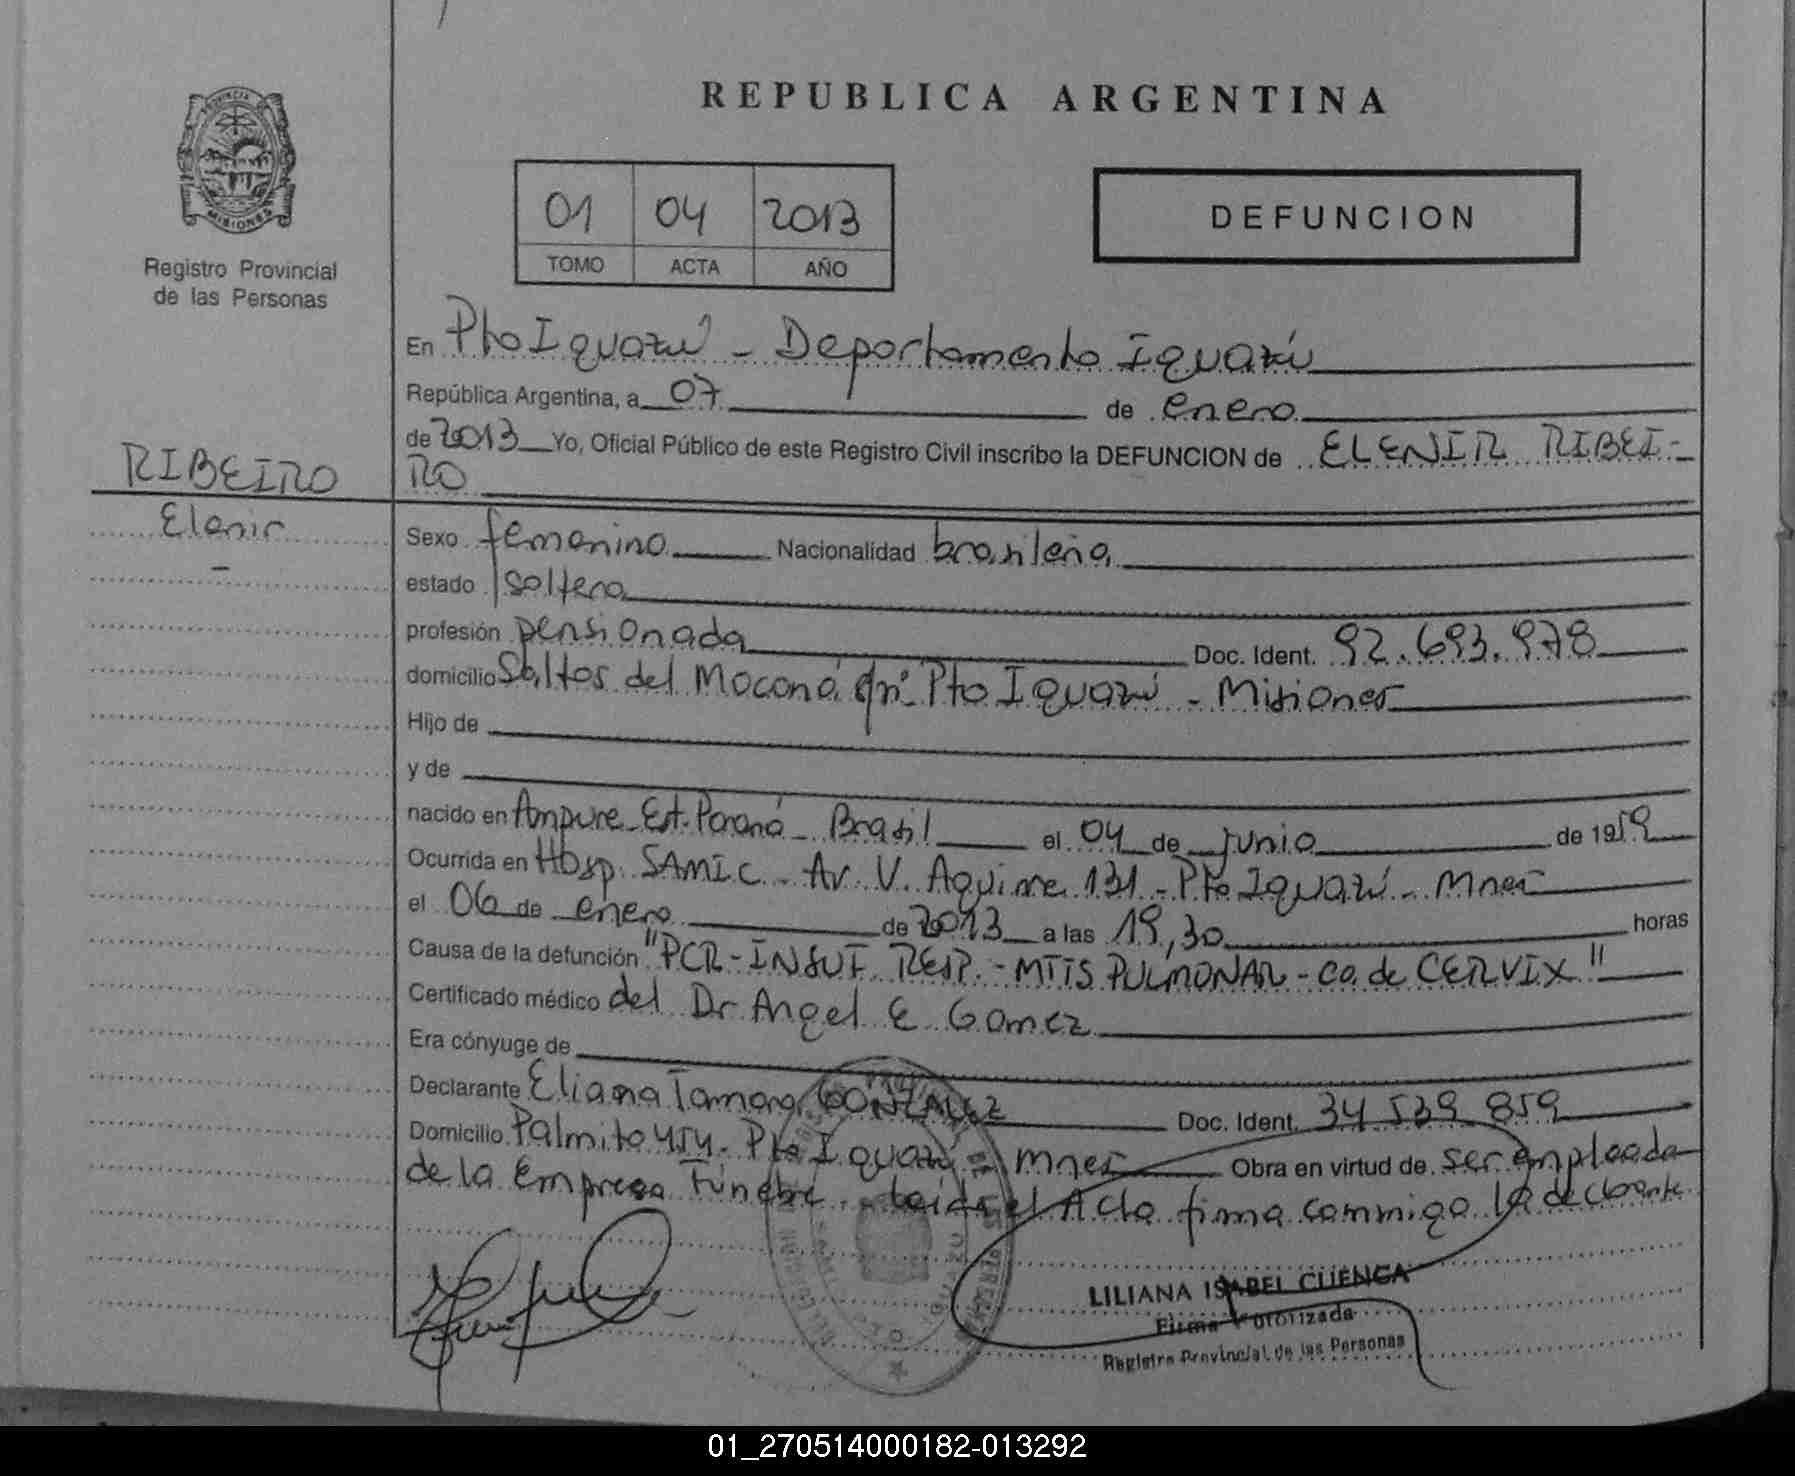 REPUBLICA ARGENTINA
PROVINCIA
MISIONES
Registro Provincial
de las Personas
01 04 2013
TOMO ACTA AÑO
DEFUNCION
En Pto Iguazú - Departamento Iguazú
República Argentina, a 07 de enero
de 2013 Yo, Oficial Público de este Registro Civil inscribo la DEFUNCION de ELENIR RIBEI-
RO
RIBEIRO
Elenir
-
Sexo femenino Nacionalidad brasileña
estado soltera
profesión pensionada Doc. Ident. 92.693.978
domicilio Saltos del Moconá s/nº Pto Iguazú - Misiones
Hijo de
y de
nacido en Ampure - Est. Paraná - Brasil el 04 de junio de 1959
Ocurrida en Hosp. SAMIC - Av. V. Aguirre 131 - Pto Iguazú - Mnes
el 06 de enero de 2013 a las 19,30 horas
Causa de la defunción "PCR - INSUF. RESP. - MTTS PULMONAR - ca. de CERVIX"
Certificado médico del Dr Angel E. Gomez
Era cónyuge de
Declarante Eliana Tamara GONZALEZ Doc. Ident. 34 539 859
Domicilio Palmito 454 - Pto Iguazú - Mnes Obra en virtud de ser empleada
de la Empresa Fúnebre. Leída el Acta firma conmigo la declarante
LILIANA ISABEL CUENCA
Firma Autorizada
Registro Provincial de las Personas
01_270514000182-013292